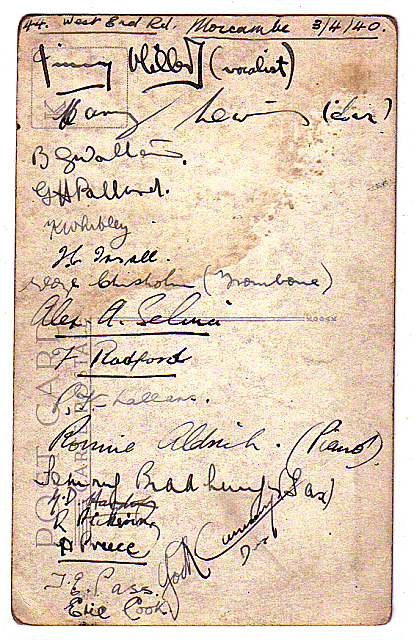 44. West End Rd. Morecambe 3/4/40.
Jimmy Miller (vocalist)
Harry Lewis (Sax)
B G Walton.
G H Pallund.
K Whibley
H. Insall.
George Chisholm (Trombone)
Alex A. Selmi
F Radford
P. K Kallans.
Ronnie Aldrich. (Piano)
Jimmy Bradbury (Sax)
R Atkinson
Preece
Jock Cummings
J. E. Pass.
Eric Cook
POST CARD
KODAK